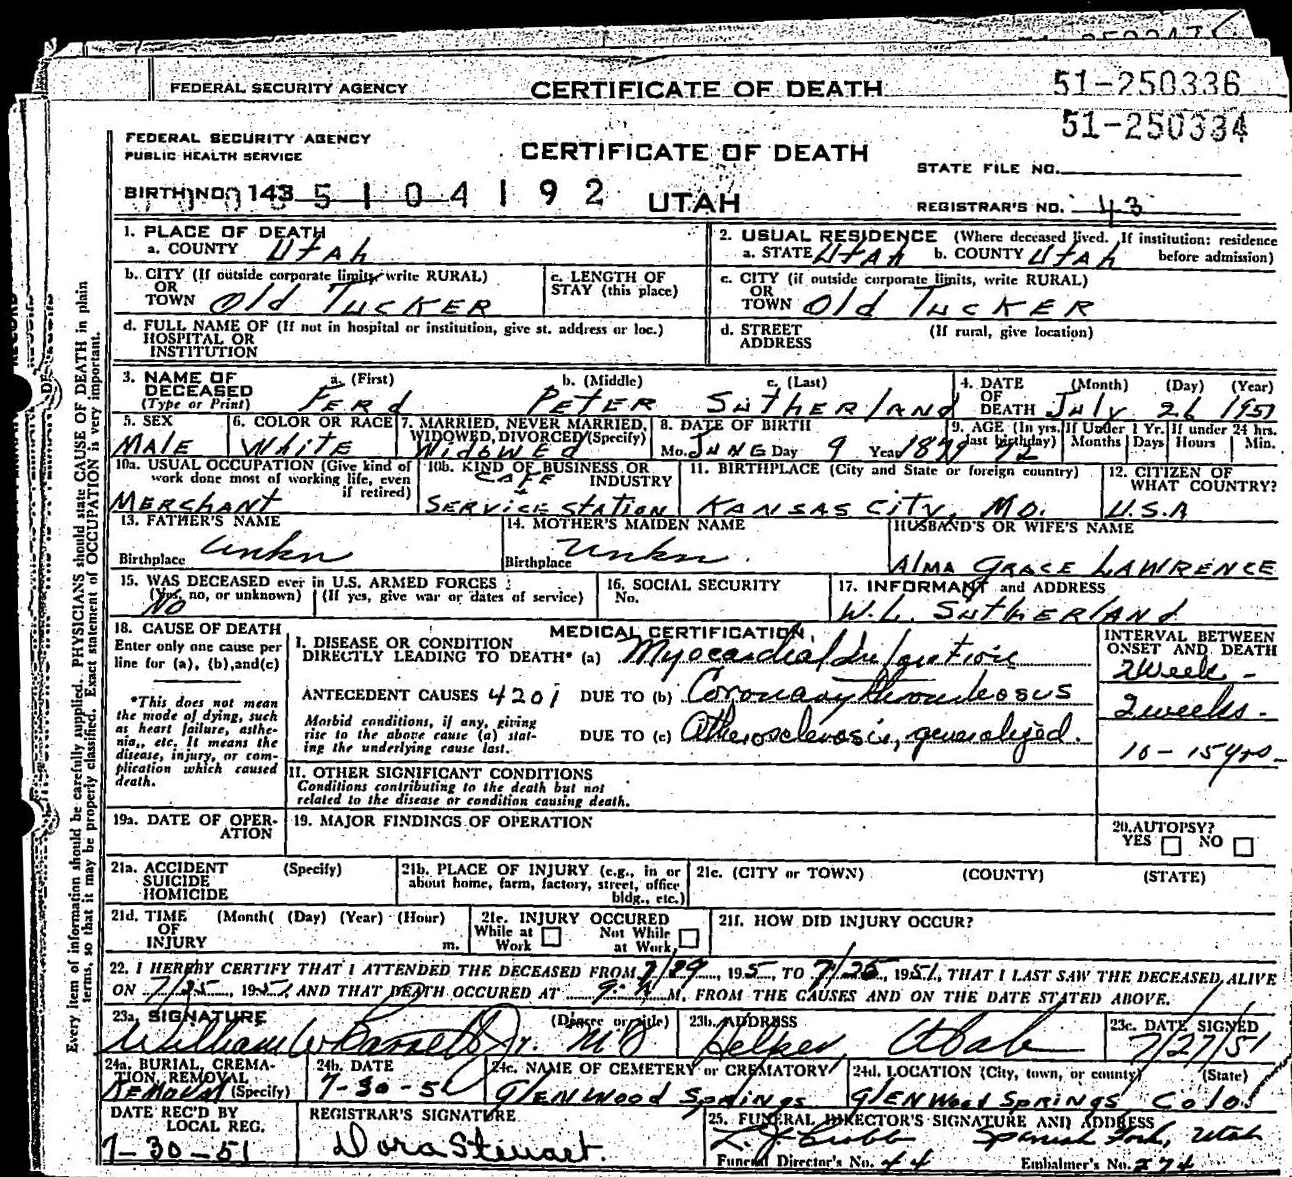 FEDERAL SECURITY AGENCY CERTIFICATE OF DEATH 51-250336
51-250334
FEDERAL SECURITY AGENCY
PUBLIC HEALTH SERVICE
CERTIFICATE OF DEATH
STATE FILE NO.
BIRTH NO. 143 5104192 UTAH
REGISTRAR'S NO. 43
1. PLACE OF DEATH
a. COUNTY Utah
2. USUAL RESIDENCE (Where deceased lived. If institution: residence before admission)
a. STATE Utah b. COUNTY Utah
b. CITY (If outside corporate limits, write RURAL)
OR
TOWN Old Tucker
c. LENGTH OF STAY (this place)
c. CITY (if outside corporate limits, write RURAL)
OR
TOWN Old Tucker
d. FULL NAME OF (If not in hospital or institution, give st. address or loc.)
HOSPITAL OR
INSTITUTION
d. STREET ADDRESS (If rural, give location)
3. NAME OF DECEASED (Type or Print)
a. (First) Ferd
b. (Middle) Peter
c. (Last) Sutherland
4. DATE OF DEATH (Month) (Day) (Year)
July 26 1951
5. SEX
Male
6. COLOR OR RACE
White
7. MARRIED, NEVER MARRIED, WIDOWED, DIVORCED (Specify)
Widowed
8. DATE OF BIRTH
Mo. June Day 9 Year 1879
9. AGE (In yrs. last birthday) 72
If Under 1 Yr. Months Days
If under 24 hrs. Hours Min.
10a. USUAL OCCUPATION (Give kind of work done most of working life, even if retired)
Merchant
10b. KIND OF BUSINESS OR INDUSTRY
Cafe
Service Station
11. BIRTHPLACE (City and State or foreign country)
Kansas City, Mo.
12. CITIZEN OF WHAT COUNTRY?
U.S.A
13. FATHER'S NAME
Birthplace Unkn
14. MOTHER'S MAIDEN NAME
Birthplace Unkn.
HUSBAND'S OR WIFE'S NAME
Alma Grace Lawrence
15. WAS DECEASED ever in U.S. ARMED FORCES
(Yes, no, or unknown) (If yes, give war or dates of service)
No
16. SOCIAL SECURITY No.
17. INFORMANT and ADDRESS
W.L. Sutherland
18. CAUSE OF DEATH
Enter only one cause per line for (a), (b), and (c)
*This does not mean the mode of dying, such as heart failure, asthenia, etc. It means the disease, injury, or complication which caused death.
MEDICAL CERTIFICATION
I. DISEASE OR CONDITION DIRECTLY LEADING TO DEATH* (a) Myocardial Infarction
INTERVAL BETWEEN ONSET AND DEATH
2 week -
ANTECEDENT CAUSES 4201 DUE TO (b) Coronary thrombosus
2 weeks -
Morbid conditions, if any, giving rise to the above cause (a) stating the underlying cause last.
DUE TO (c) Atherosclerosis, generalized.
10 - 15 yrs -
II. OTHER SIGNIFICANT CONDITIONS
Conditions contributing to the death but not related to the disease or condition causing death.
19a. DATE OF OPERATION
19. MAJOR FINDINGS OF OPERATION
20. AUTOPSY?
YES NO
21a. ACCIDENT (Specify)
SUICIDE
HOMICIDE
21b. PLACE OF INJURY (e.g., in or about home, farm, factory, street, office bldg., etc.)
21c. (CITY or TOWN) (COUNTY) (STATE)
21d. TIME OF INJURY (Month( (Day) (Year) (Hour) m.
21e. INJURY OCCURED
While at Work Not While at Work
21f. HOW DID INJURY OCCUR?
22. I HEREBY CERTIFY THAT I ATTENDED THE DECEASED FROM 7/29, 195, TO 7/25, 1951, THAT I LAST SAW THE DECEASED ALIVE
ON 7/25, 1951, AND THAT DEATH OCCURED AT 9 A M. FROM THE CAUSES AND ON THE DATE STATED ABOVE.
23a. SIGNATURE (Degree or title)
William W Jr. MD
23b. ADDRESS
Helper, Utah
23c. DATE SIGNED
7/27/51
24a. BURIAL, CREMATION, REMOVAL (Specify)
Removal
24b. DATE
7-30-51
24c. NAME OF CEMETERY or CREMATORY
Glenwood Springs
24d. LOCATION (City, town, or county) (State)
Glenwood Springs Colo.
DATE REC'D BY LOCAL REG.
7-30-51
REGISTRAR'S SIGNATURE
Dora Stewart.
25. FUNERAL DIRECTOR'S SIGNATURE AND ADDRESS
Spanish Fork, Utah
Funeral Director's No. 44 Embalmer's No. 274
Every item of information should be carefully supplied. PHYSICIANS should state CAUSE OF DEATH in plain
terms, so that it may be properly classified. Exact statement of OCCUPATION is very important.